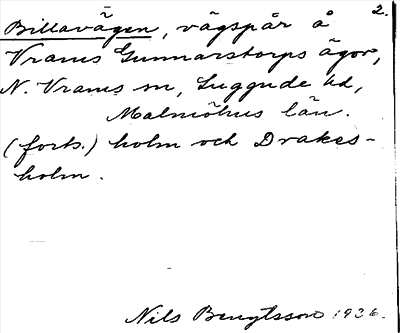 2.
Billavägen, vägspår å
Vrams Gunnarstorps ägor,
N. Vrams sn, Luggude hd,
Malmöhus län.
(forts.) holm och Drakes-
holm.
Nils Bengtsson 1936.